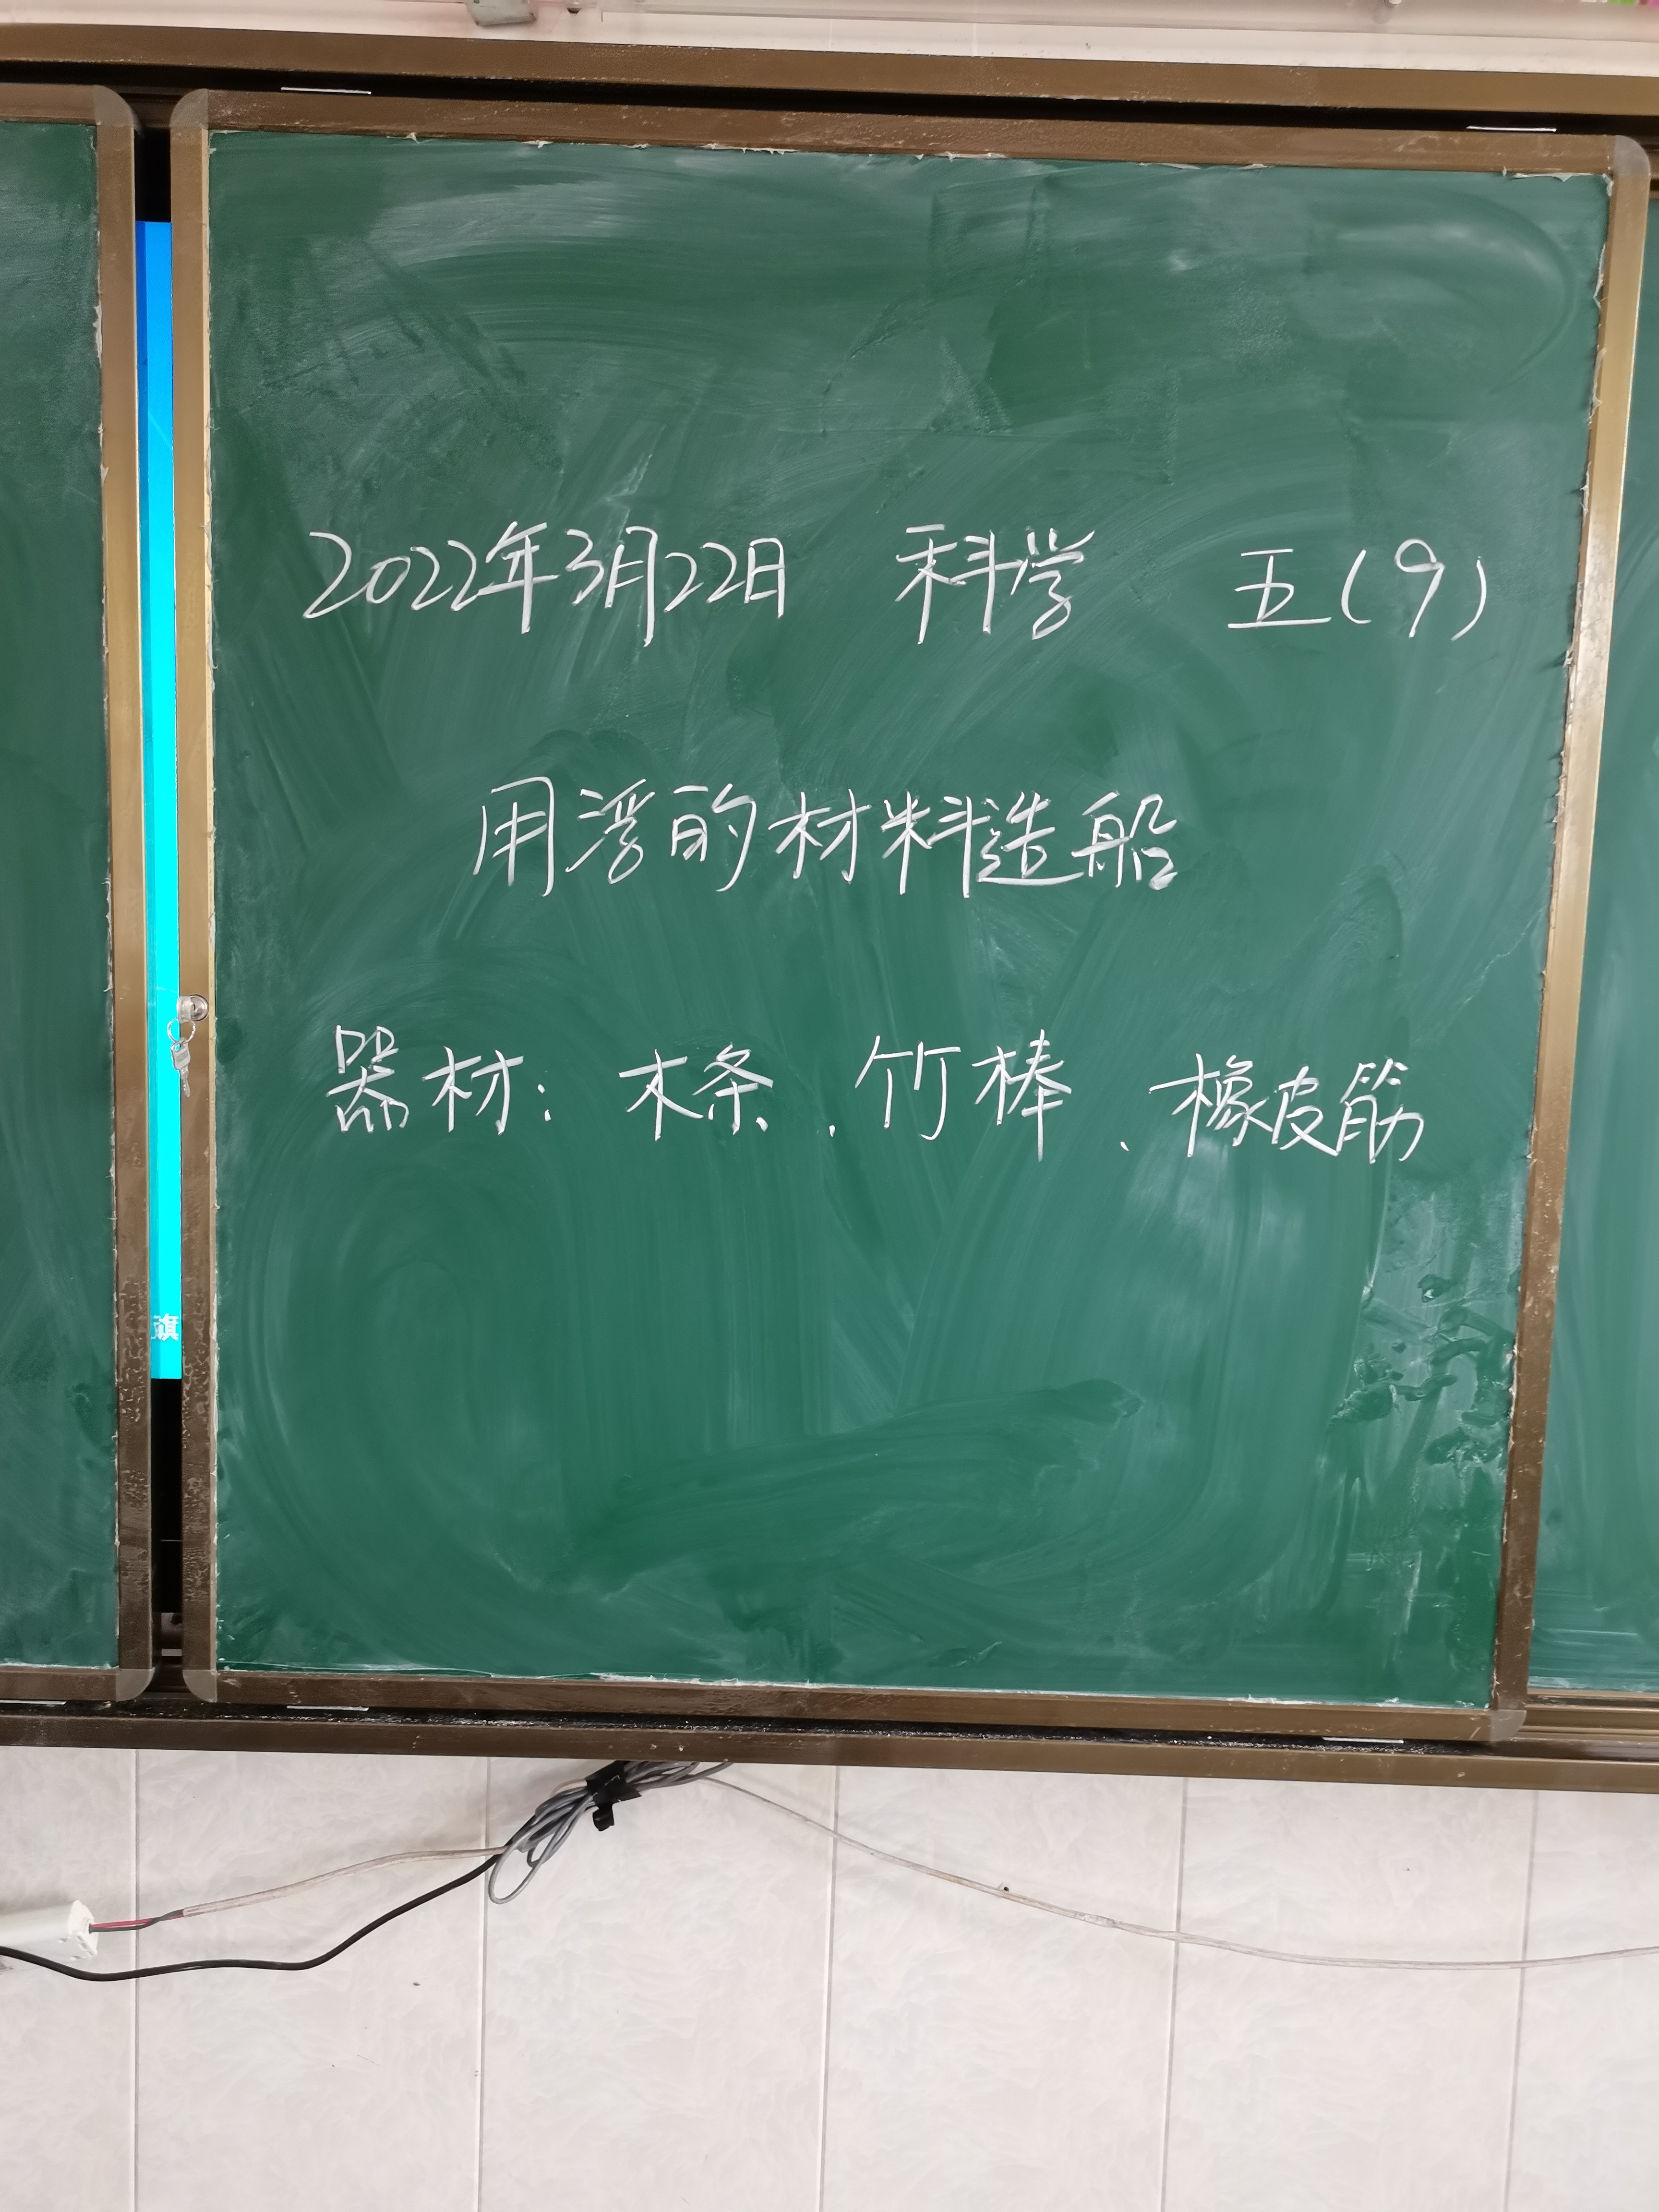 2022年3月22日 科学 五(9)
用浮的材料造船
器材：木条、竹棒、橡皮筋
旗